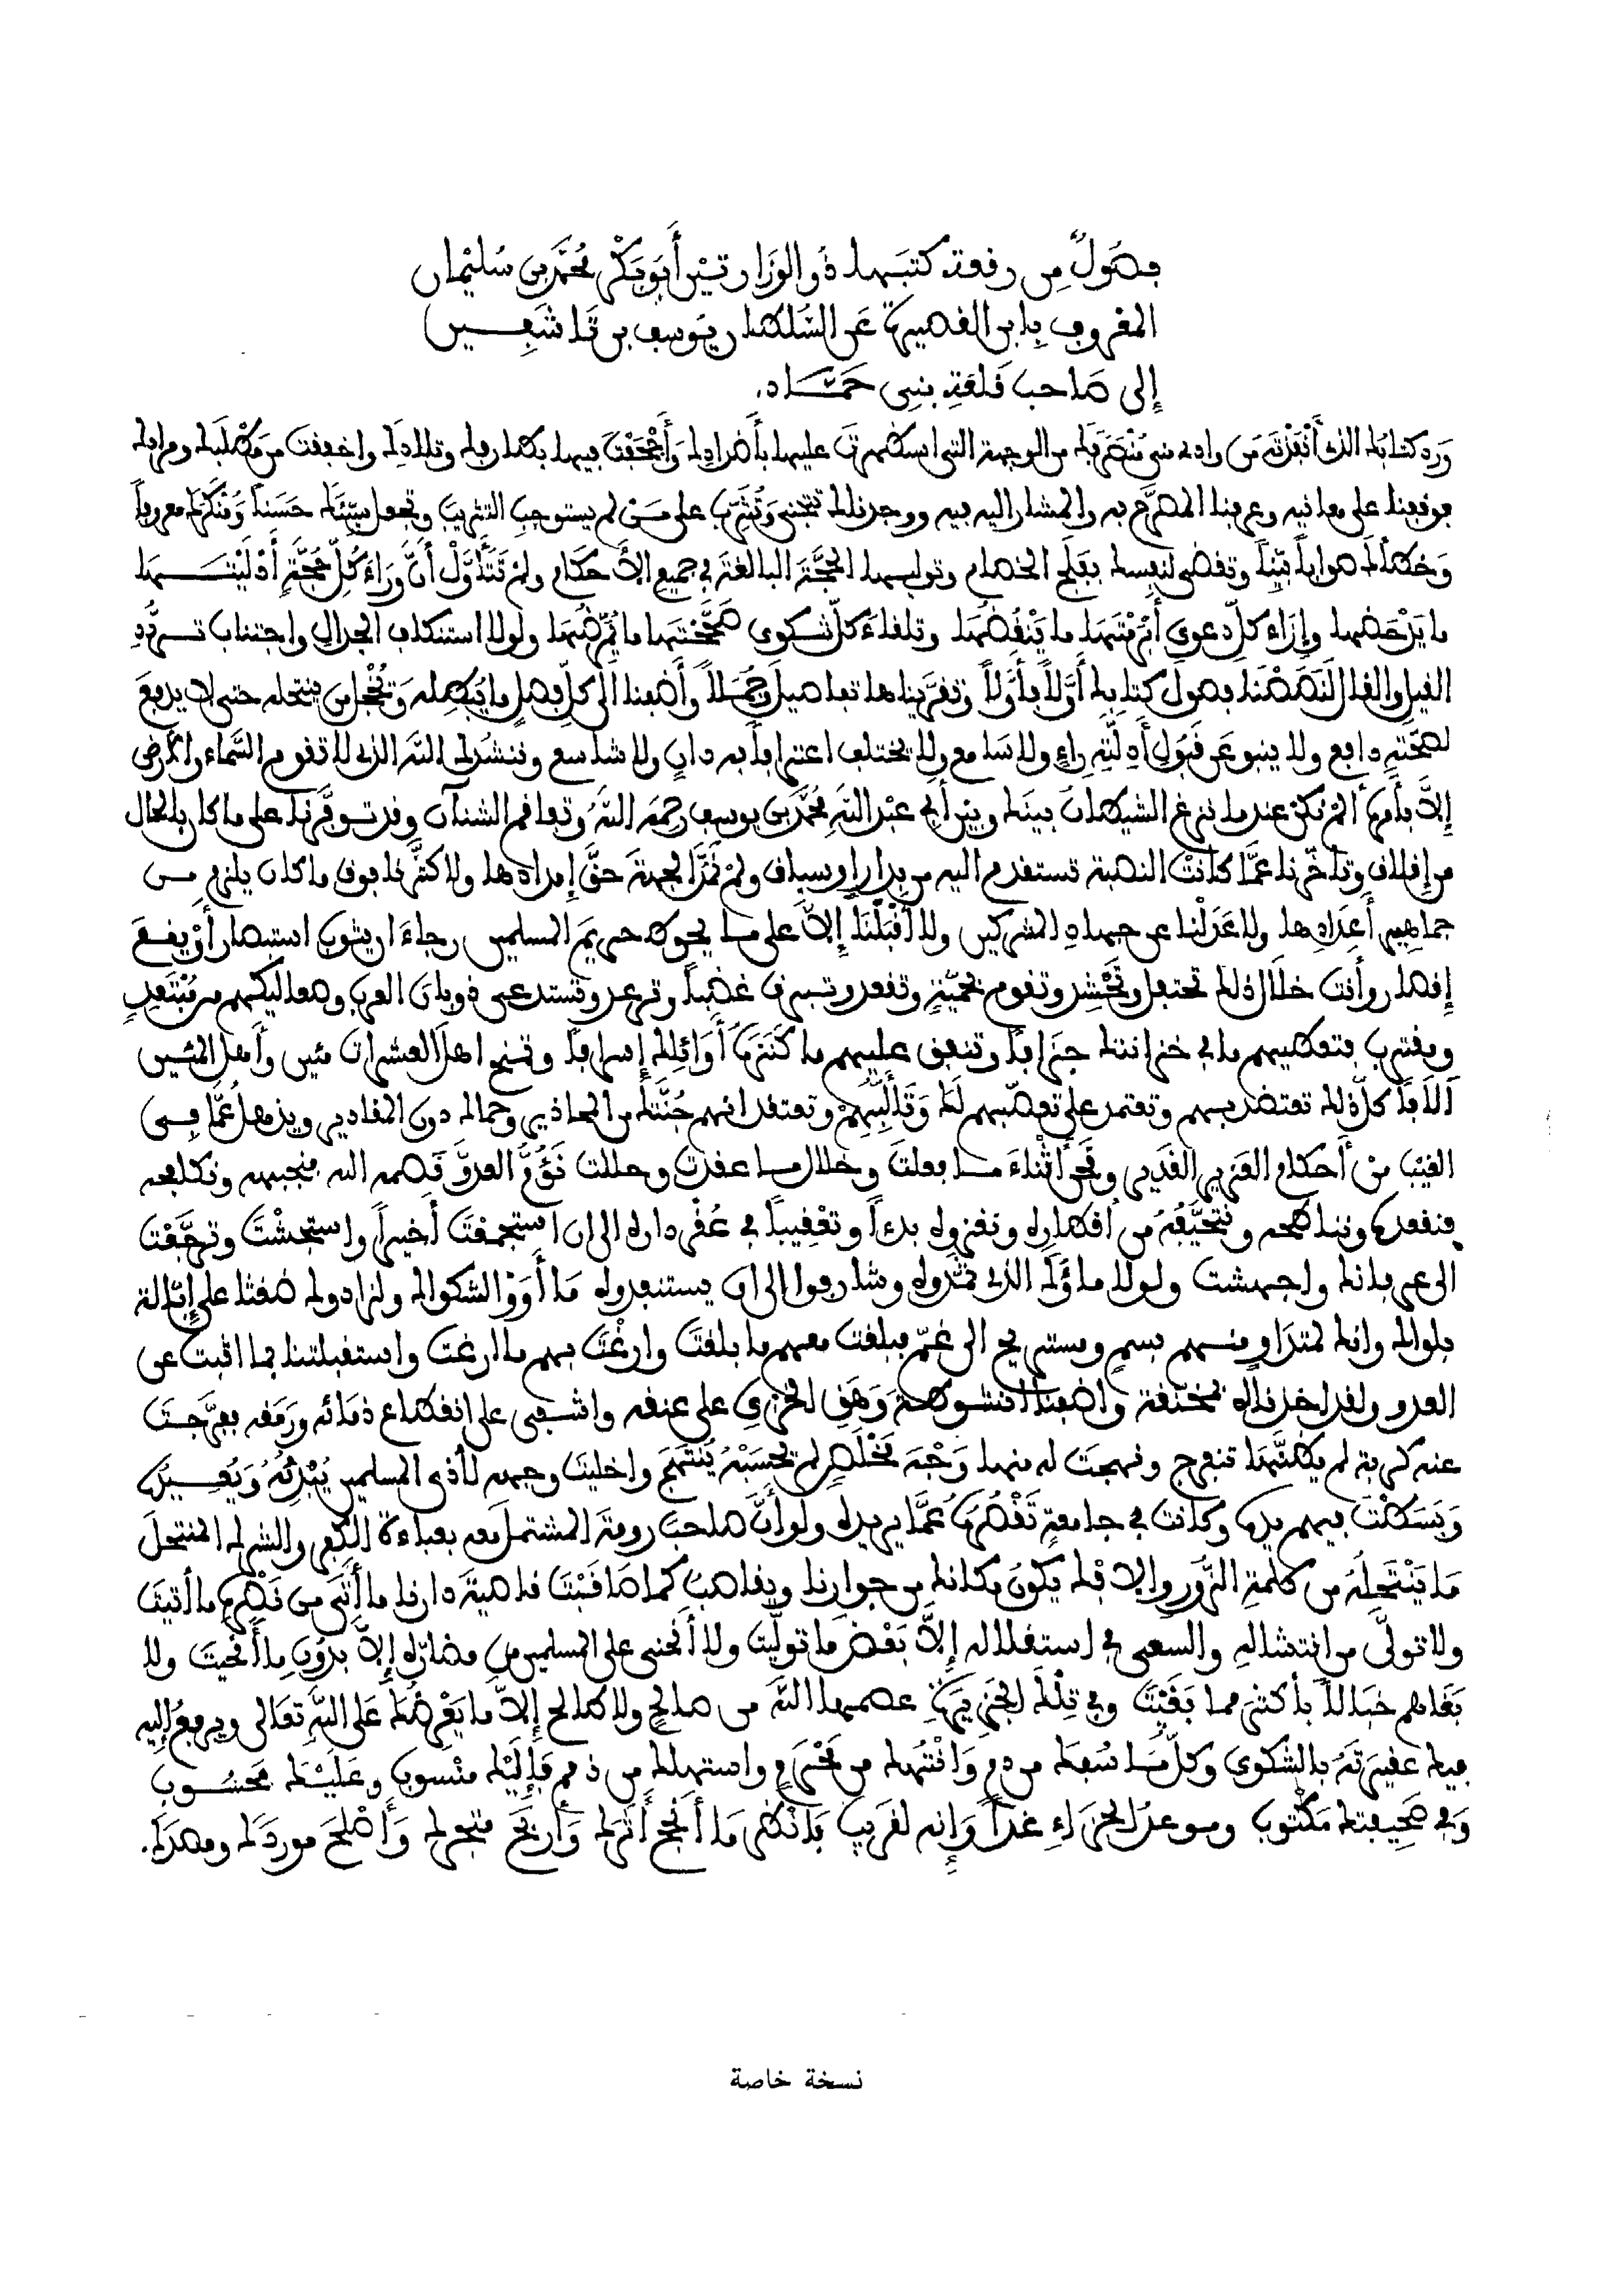 فصولٌ من رقعة كتبها ذو الوزارتين أبو بكر محمد بن سليمان
المعروف بابن القصيرة عن السلطان يوسف بن تاشفين
إلى صاحب قلعة بني حماد.
ورد كتابك الذي أنفذته من وادي منى منصرفك من الوجهة التي استظهرت عليها بأضدادك وأجحفت فيها بطارفك وتلادك واخفقت من مطلبك ومرادك
فوقفنا على معانيه وعرفنا المصرح به والمشار إليه فيه ووجدناك تتجنى وتثرب على من لم يستوجب التثريب وتجعل سيئك حسنا ومنكرك معروفا
وخطأك صوابا بينا وتقضي لنفسك بفلج الخصام وتوليها الحجة البالغة في جميع الأحكام ولم تتأول أن وراء كل حجة أدليتـــها
ما يدحضها وإزاء كل دعوى أبرمتها ما ينقضها وتلقاء كل شكوى صححتها ما يمرضها ولولا استنكاف الجدال واجتناب تردد
القيل والقال لنصصنا فصول كتابك أولا فأولا وتقريناها تفاصيل وجملا وأضفنا إلى كل فصل ما يبطله ويخجل من ينتحله حتى لا يدفع
لصحته دافع ولا ينبو عن قبول أدلته راءٍ ولا سامع ولا يختلف اعترافا به دانٍ ولا شاسع وننشدك الله الذي لا تقوم السماء والأرض
إلا بأمره ألم نكن عندما نزغ الشيطان بينك وبين أبي عبد الله محمد بن يوسف رحمه الله وتفاقم الشنآن وقد توقرنا على ما كان بالحال
من إقلاق وتأخرنا عما كانت النصبة تستقدم إليه من بدار أو سباق ولم نمد الجهة حق إمدادها ولا كثرنا فوق ما كان يلزم من
جماهير أعدادها ولا عدلنا عن جهاد المشركين ولا أقبلنا إلا على ما يحوط حريم المسلمين رجاء ان يثوب استبصار أو يقع
إقصار وأنت خلال ذلك تحتفل وتحشد وتقوم بحمية وتقعد وتبرق غضبا وترعد وتستدعي ذوبان العرب وصعاليكهم من مبتعدٍ
ومقترب فتعطيهم ما في خزائنك جزافا وتنفق عليهم ما كنزه أوائلك إسرافا وتمنح اهل العشرات مئين وأهل المئين
آلافا كل ذلك تعتضد بهم وتعتمد على تعصبهم لك وتألبهم وتعتقد انهم جنتك من المحاذير وحماك دون المقادير ويذهل عما في
الغيب من أحكام العزيز القدير ونحن أثناء ما فعلت وخلال ما عقدت وحللت نؤم العدو قصمه الله فنجبهه ونكافحه
فنقعده ونناطحه ونتحيفه من أقطاره ونغزوه بدءا وتعقيبا في عقر داره الى ان استجمعت أخيرا واستجشت وترجعت
الى عرفانك واجهشت ولولا ماؤك الذي ثمدوه وشارفوا الى ان يستنفدوه ما أووا لشكواك ولزادوك ضغثا على إبالة
بلواك وانك لمتداو منهم بسم ومستريح الى غم فبلغت معهم ما بلغت وارغت بهم ما ارغت واستقبلتنا بما اقبت عن
العدو ولقد اخذناه بمخنقه واضفنا انشوطة وهق الخزي على عنقه واشفى على انقطاع ذمائه ورمقه ففرجت
عنه كربة لم يظنها تنفرج ونهجت له منها وجه مخلص لم يحسبه ينتهج واخليت وجهه لأذى المسلمين يبدئه ويعيده
وبسطت فيهم يده وكانت في جامعةٍ تقصره عما يريده ولو أن صاحب رومة المشتمل معه بعباءة الكفر والشرك المنتحل
ما ينتحله من كلمة الزور والافك يكون بمكانك من جوارنا ويصاقب كما صاقبت قاصية دارنا ما أتى من نصره ما أتيت
ولا تولى من انتشاله والسعي في استقلاله إلا بعض ما توليت ولا أنحى على المسلمين من مضاره إلا بدون ما أنحيت ولا
بغاهم خبالا بأكثر مما بغيت وفي تلك الجزيرة عصمها الله من صالحٍ ولا طالح إلا ما يعرضك على الله تعالى ويرفع إليه
فيك عقيرته بالشكوى وكل ما سفك من دم وانتهك من محرم واستهلك من ذمم فإليك منسوب وعليك محسوب
وفي صحيفتك مكتوب وموعد الجزاء غدا وإنه لقريب فانظر ما أنجح أثرك وأربح متجرك وأصلح موردك ومصدرك.
نسخة خاصة